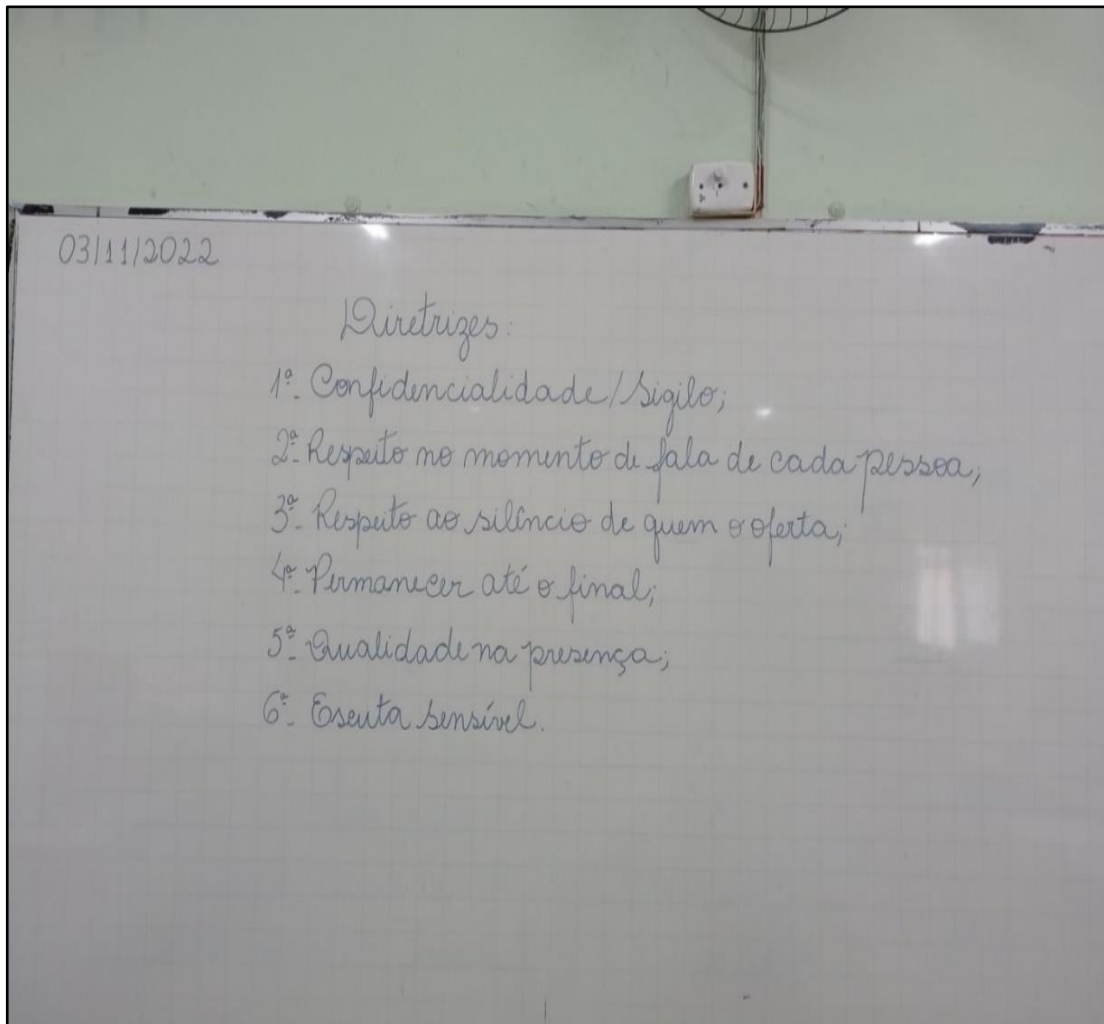 03/11/2022
Diretrizes:
1ª- Confidencialidade/Sigilo;
2ª- Respeito no momento de fala de cada pessoa;
3ª- Respeito ao silêncio de quem o oferta;
4ª- Permanecer até o final;
5ª- Qualidade na presença;
6ª- Escuta sensível.